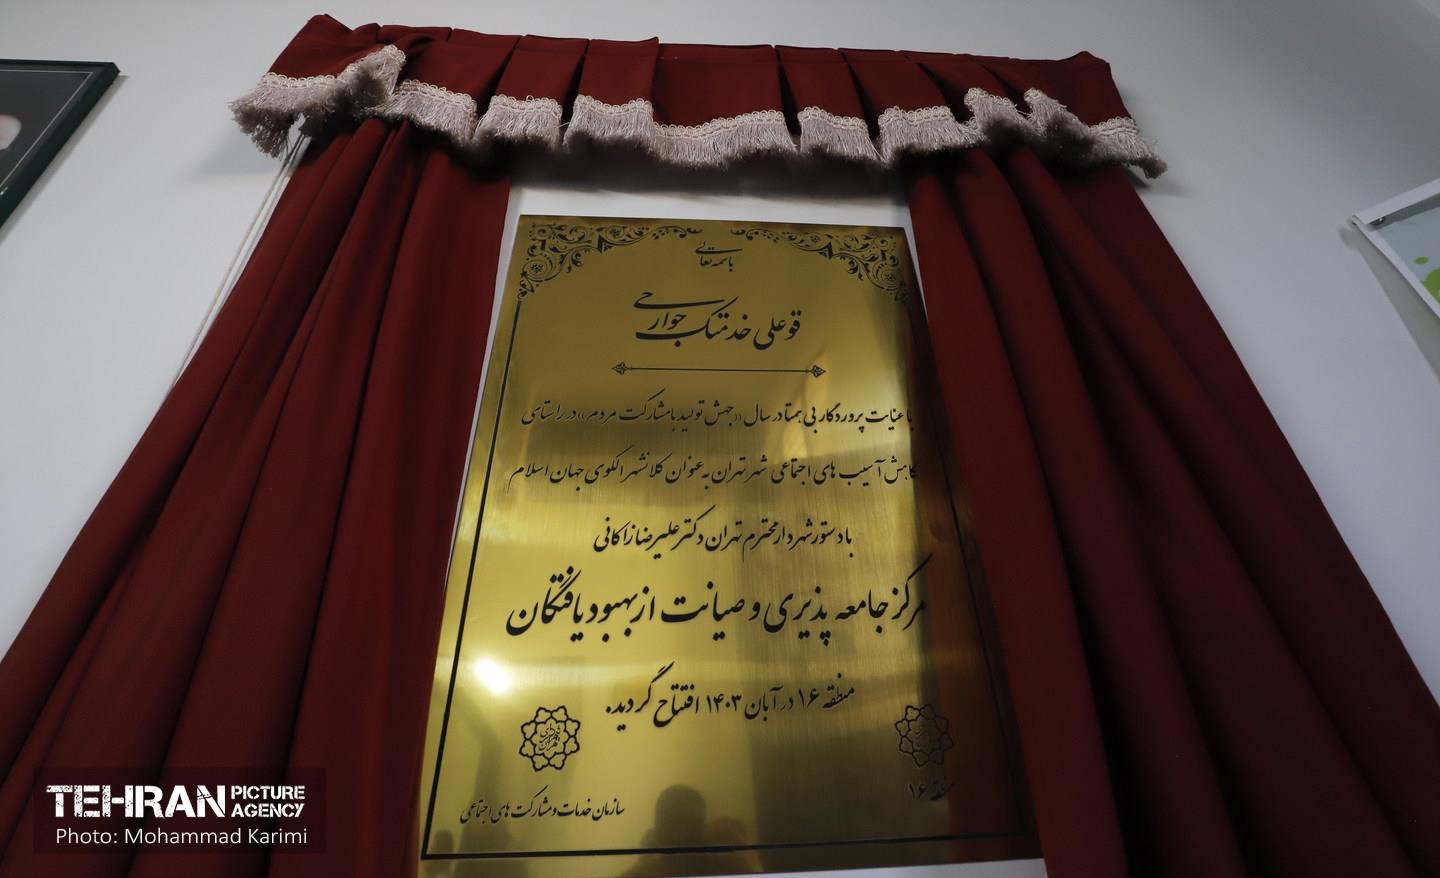 باسمه تعالی
قو علی خدمتک جوارحی
با عنایت پروردگار بی همتا در سال «جهش تولید با مشارکت مردم» در راستای
کاهش آسیب های اجتماعی شهر تهران به عنوان کلانشهر الگوی جهان اسلام
با دستور شهردار محترم تهران دکتر علیرضا زاکانی
مرکز جامعه پذیری و صیانت از بهبود یافتگان
منطقه ۱۶ در آبان ۱۴۰۳ افتتاح گردید.
منطقه ۱۶
سازمان خدمات و مشارکت های اجتماعی
TEHRAN PICTURE AGENCY
Photo: Mohammad Karimi